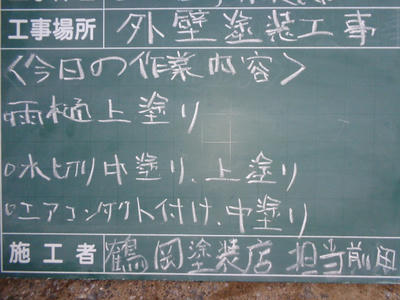 工事場所 外壁塗装工事
<今日の作業内容>
雨樋上塗り
○水切り中塗り、上塗り
○エアコンダクト付け、中塗り
施工者 鶴岡塗装店 担当前田